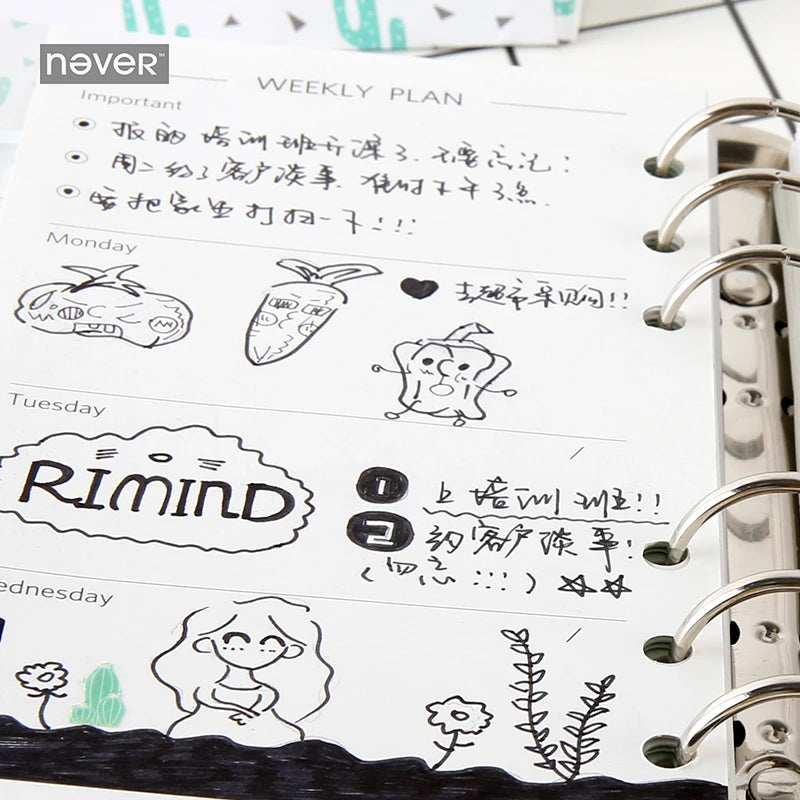 never™
WEEKLY PLAN
Important
报的培训班开课了.不要忘记:
周二约了客户谈事.准时下午3点.
要把家里打扫一下!!!
Monday
去超市采购!!
Tuesday
RIMIND
1 上培训班!!
2 约客户谈事!
(勿忘:::)
ednesday